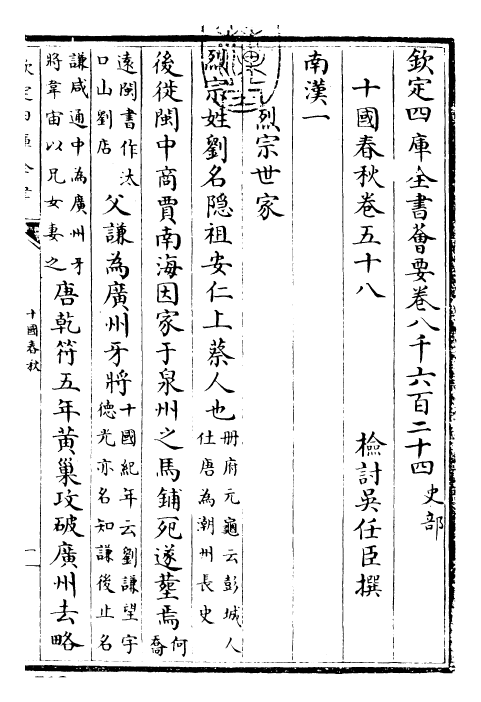 欽定四庫全書薈要卷八千六百二十四 史部
十國春秋卷五十八
檢討吳任臣撰
南漢一
烈宗世家
烈宗姓劉名隱祖安仁上蔡人也
冊府元龜云彭城人
仕唐為潮州長史
後徙閩中商賈南海因家于泉州之馬鋪死遂塟焉
何喬
遠閩書作汰
口山劉店
父謙為廣州牙將
十國紀年云劉謙望字
德光亦名知謙後止名
謙咸通中為廣州牙
將韋宙以兄女妻之
唐乾符五年黃巢攻破廣州去略
十國春秋
一